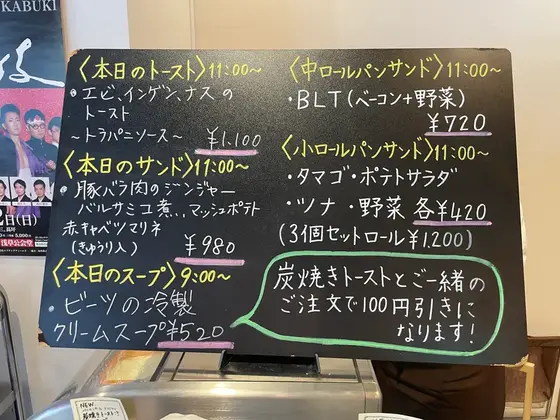 KABUKI
〈本日のトースト〉11:00〜
・エビ、インゲン、ナスの
トースト
〜トラパニソース〜 ¥1.100
〈本日のサンド〉11:00〜
・豚バラ肉のジンジャー
バルサミコ煮、マッシュポテト
赤キャベツマリネ
(きゅうり入) ¥980
〈本日のスープ〉9:00〜
・ビーツの冷製
クリームスープ¥520
〈中ロールパンサンド〉11:00〜
・BLT(ベーコン+野菜)
¥720
〈小ロールパンサンド〉11:00〜
・タマゴ・ポテトサラダ
・ツナ・野菜 各¥420
(3個セットロール¥1.200)
炭焼きトーストとご一緒の
ご注文で100円引きに
なります!
2日(日)
浅草公会堂
NEW